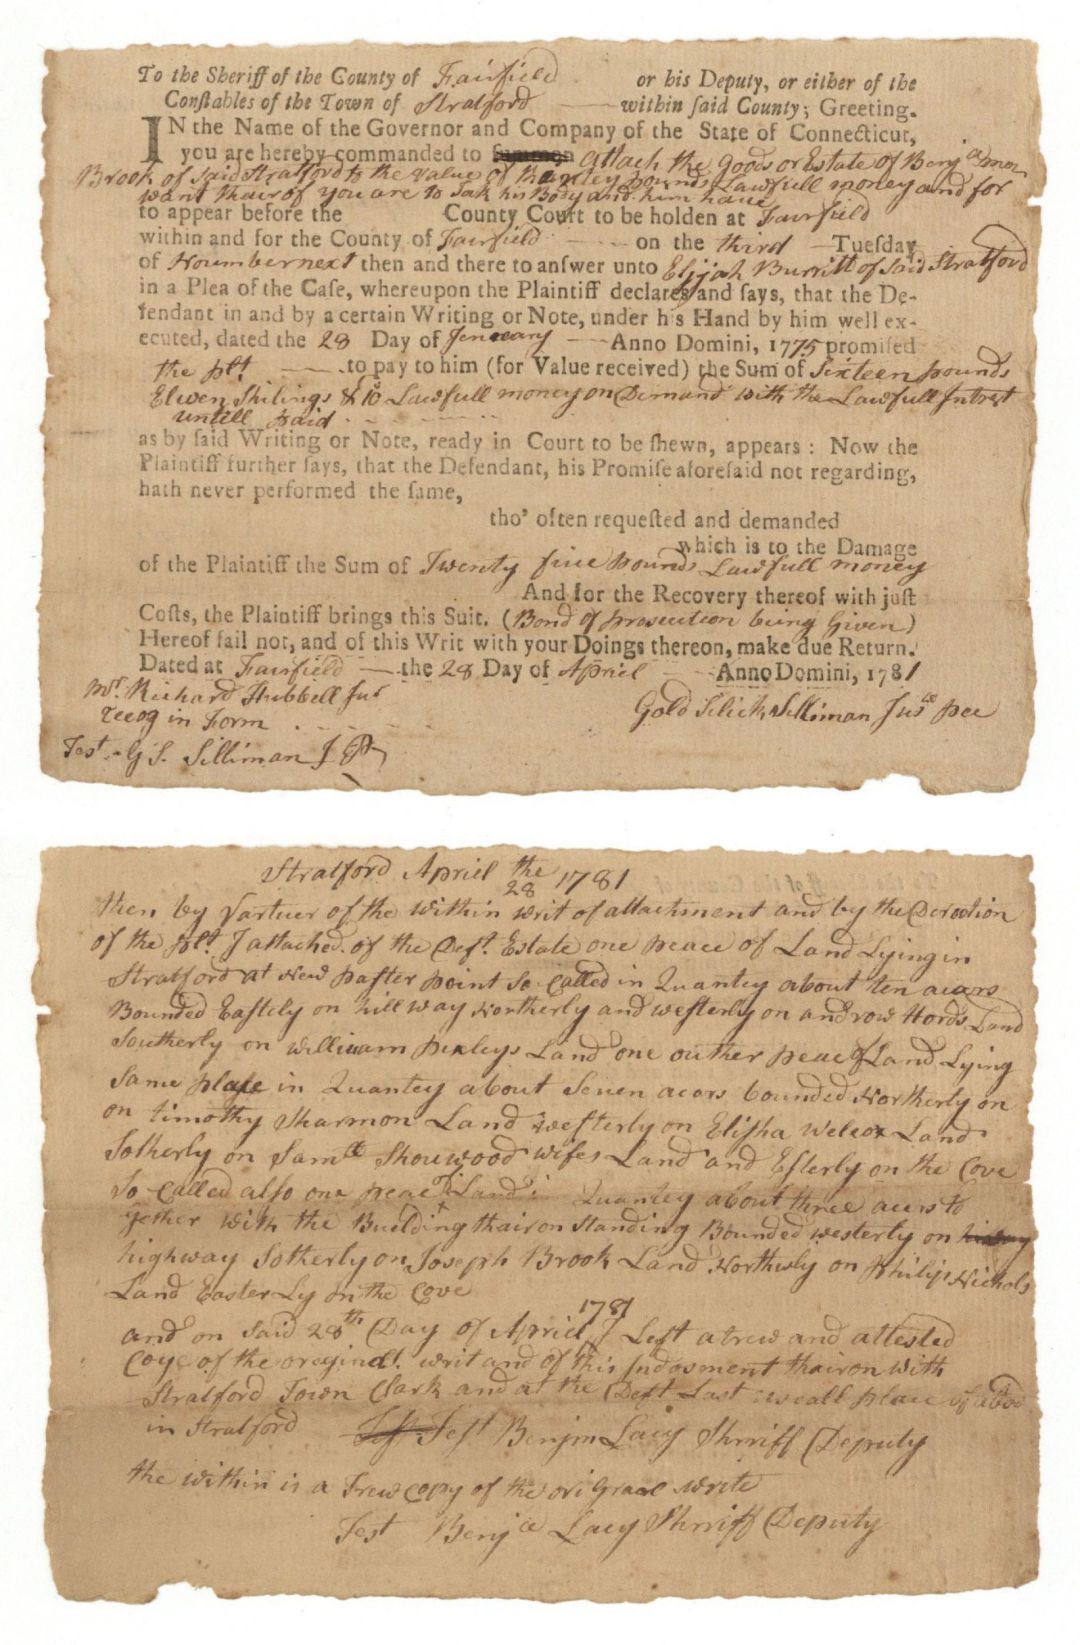 To the Sheriff of the County of Fairfield or his Deputy, or either of the
Constables of the Town of Stratford within said County; Greeting.
IN the Name of the Governor and Company of the State of Connecticut,
you are hereby commanded to Summon attach the Goods or Estate of Benjamin
Brook of said Stratford to the value of pounds Lawfull money and for
want thair of you are to tak his Body and him have
to appear before the County Court to be holden at Fairfield
within and for the County of Fairfield on the third Tuesday
of Noumber next then and there to answer unto Elijah Burritt of said Stratford
in a Plea of the Case, whereupon the Plaintiff declares and says, that the De-
fendant in and by a certain Writing or Note, under his Hand by him well ex-
ecuted, dated the 28 Day of Jeneuary Anno Domini, 1775 promised
the plt. to pay to him (for Value received) the Sum of Sixteen pounds
Elwen Shilings & Lawfull money on Demand with the Lawfull Intrest
untill paid
as by said Writing or Note, ready in Court to be shewn, appears: Now the
Plaintiff further says, that the Defendant, his Promise aforesaid not regarding,
hath never performed the same,
tho' often requested and demanded
which is to the Damage
of the Plaintiff the Sum of Twenty five pounds Lawfull money
And for the Recovery thereof with just
Costs, the Plaintiff brings this Suit. (Bond of prosecution being Given)
Hereof fail not, and of this Writ with your Doings thereon, make due Return.
Dated at Fairfield the 28 Day of Apriel Anno Domini, 1781
Mr. Richard Hubbell Jur
recog in Form
Gold Silick Silliman Jusce pee
Test. G S. Silliman J P
Stratford Apriel the 28 1781
then by vartuer of the within writ of attachment and by the Deroction
of the plt. I attached of the Deft. Estate one peace of Land Lying in
Stratford at New paster point so Called in Quantey about ten acors
Bounded Eastely on hill way Northerly and westerly on androw Hords Land
Southerly on William pixleys Land one outher peac of Land Lying
same plase in Quantey about Seven acors bounded Northerly on
on timothy Sharmon Land westerly on Elisha Welcox Land
Sotherly on Samll Shouwood wifes Land and Esterly on the Cove
so Called also one peac of Land Quantey about three acurs to
gether with the Building thairon standing Bounded westerly on
highway Sotherly on Joseph Brook Land Northerly on Philip Nichols
Land Easter Ly on the Cove
and on said 28th Day of Apriel 1781 I Left a trew and attested
Coye of the oreginal writ and of this Indosment thairon with
Stratford Town Clark and at the Deft Last useall place of abod
in Stratford Test Test Benjm Lacy Shrriff Deputy
the within is a Trew Copy of the write
Test Benja Lacy Shrriff Deputy